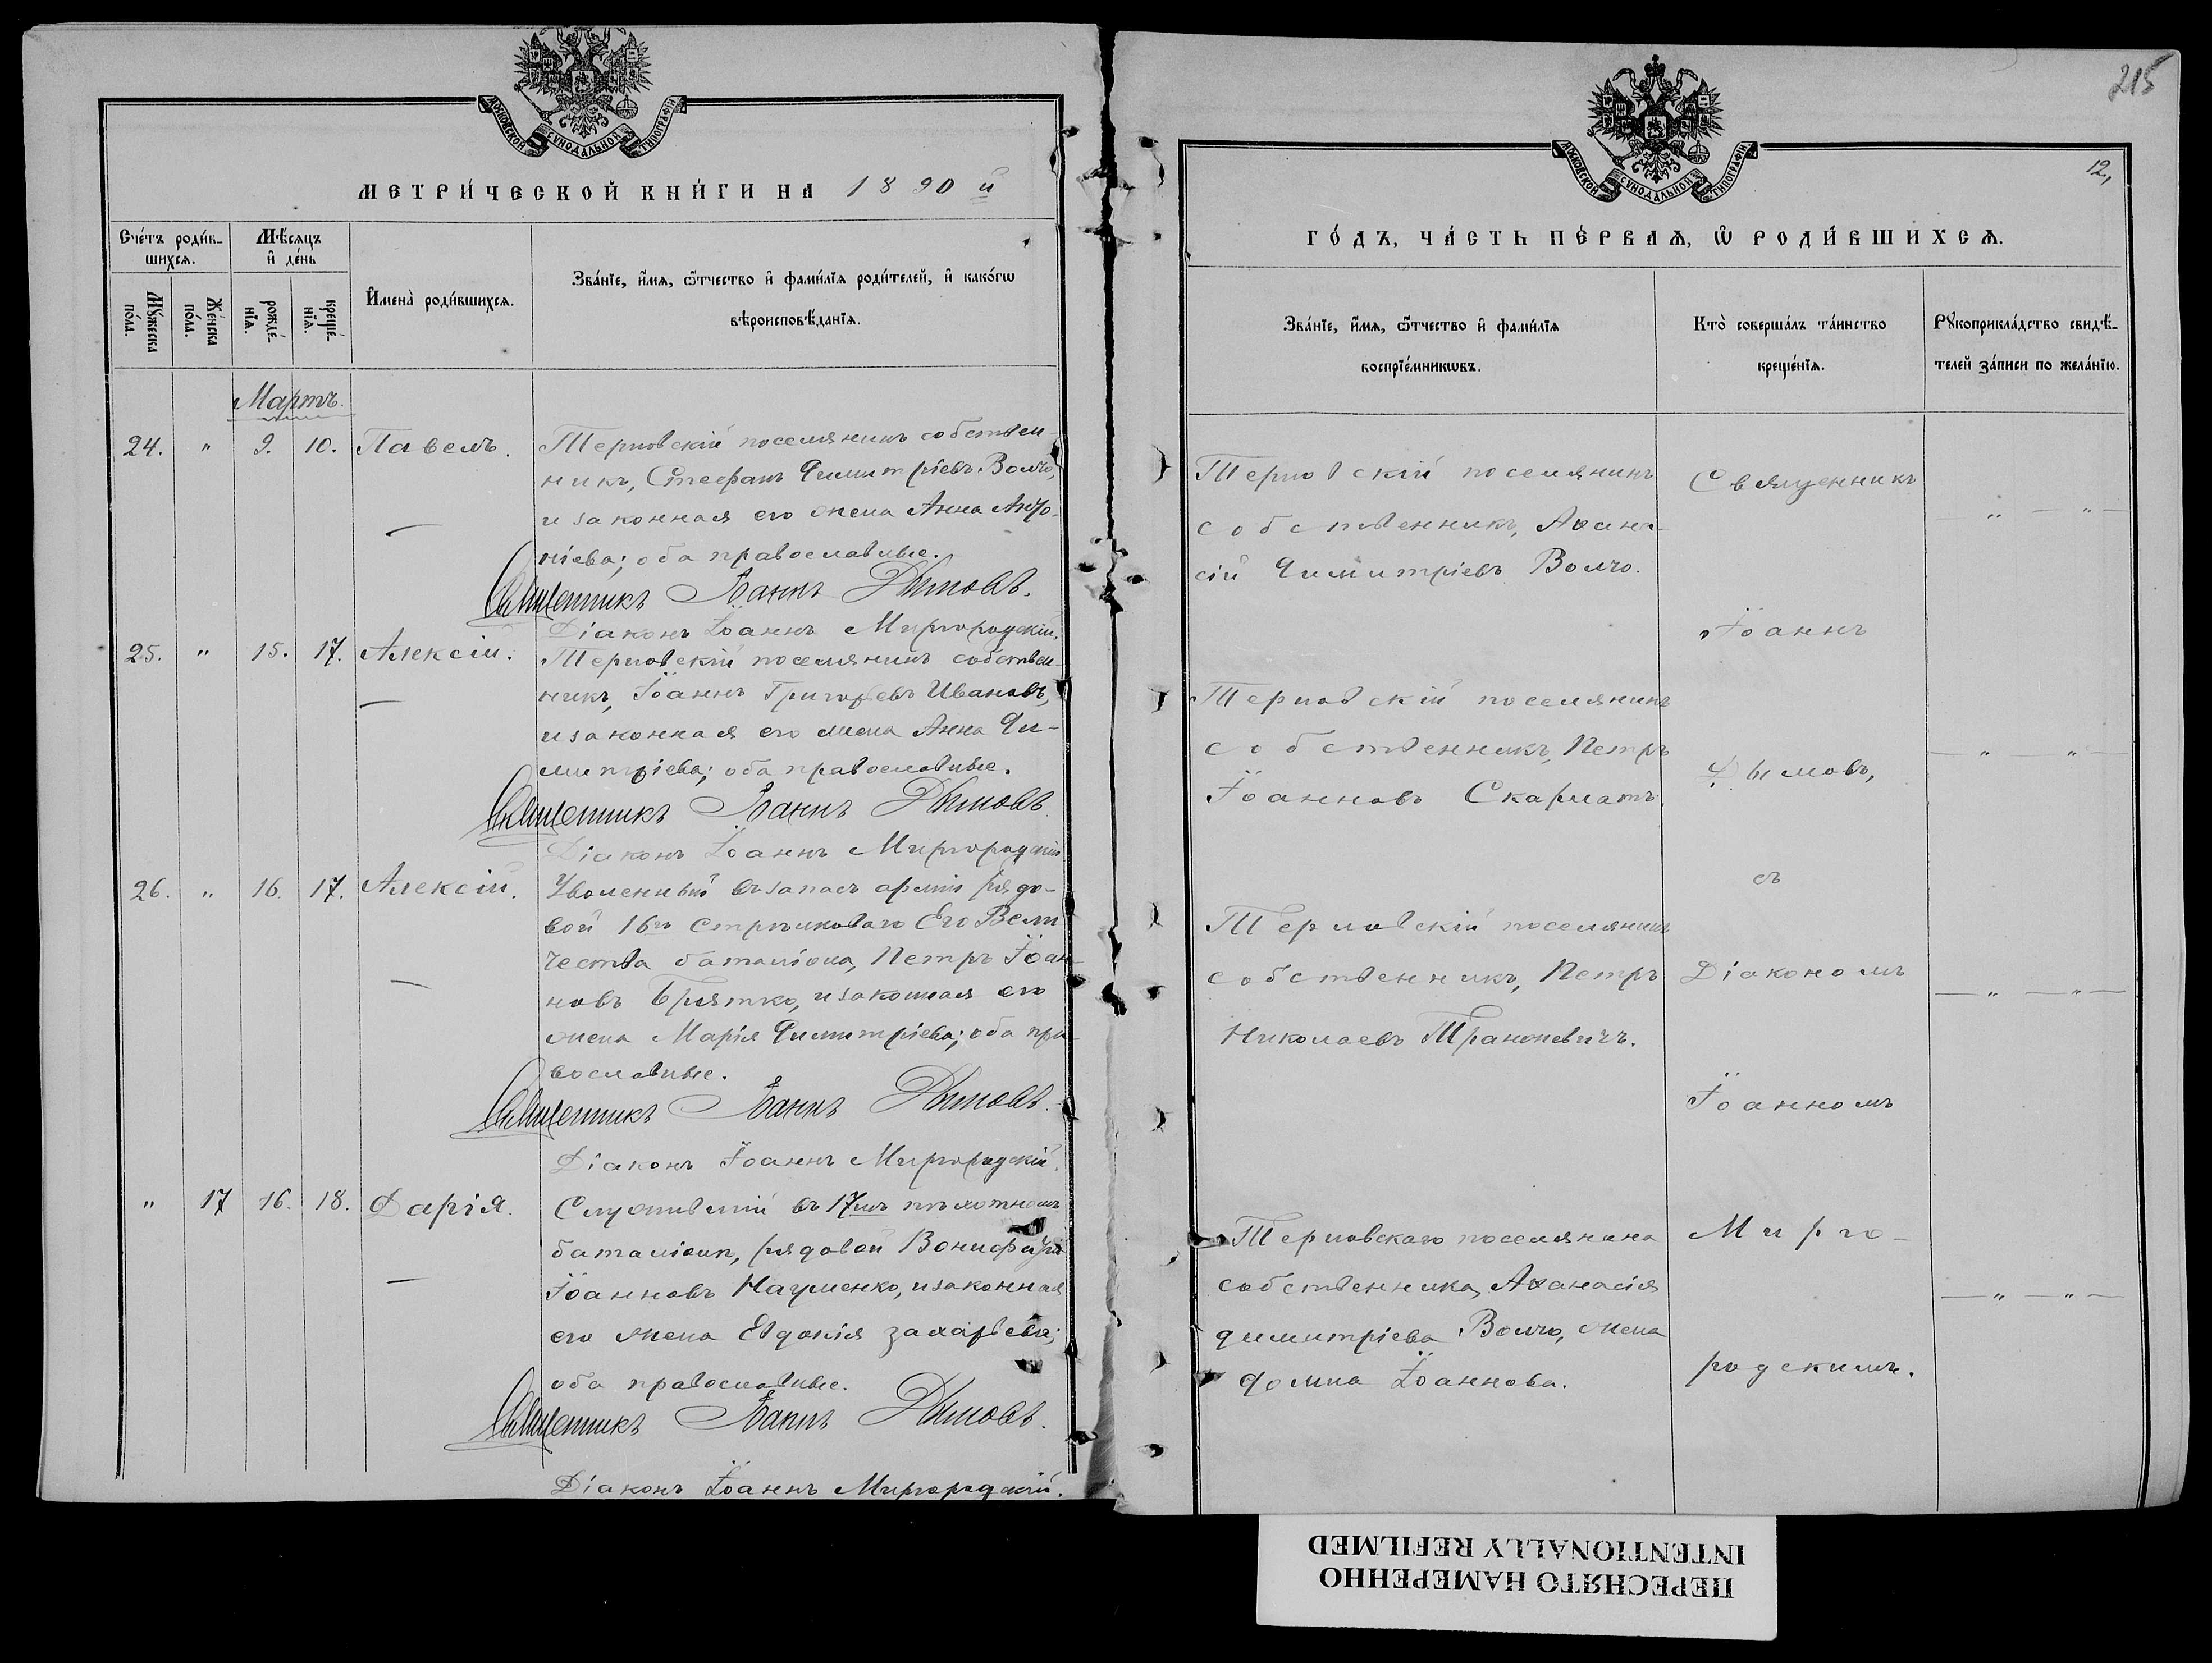 МОСКОВСКОЙ СѴНОДАЛЬНОЙ ТИПОГРАФІИ
МЕТРИ́ЧЕСКОЙ КНИ́ГИ НА 1890 й
Сче́тъ роди́в-
шихсѧ.
Мѣ́сѧцъ
и҆ де́нь
Мꙋ́жеска
по́ла.
Же́нска
по́ла.
рожде́-
нїѧ.
креще́-
нїѧ.
И҆мена̀ роди́вшихсѧ.
Зва́нїе, и҆́мѧ, ѻ҆́тчество и҆ фами́лїѧ роди́телей, и҆ како́гѡ
вѣроисповѣ́данїѧ.
Мартъ.
24. " 9. 10. Павелъ. Терновскій поселянинъ собствен-
никъ, Стефанъ Димитріевъ Волчо,
и законная его жена Анна Анто-
ніева; оба православные.
Священникъ Іоаннъ Дымовъ.
Діаконъ Іоаннъ Миргородскій.
25. " 15. 17. Алексій. Терновскій поселянинъ собствен-
никъ, Іоаннъ Григорьевъ Ивановъ,
и законная его жена Анна Ди-
митріева; оба православные.
Священникъ Іоаннъ Дымовъ
Діаконъ Іоаннъ Миргородскій
26. " 16. 17. Алексій. Уволенный въ запасъ арміи рядо-
вой 16го Стрѣлковаго Его Вели
чества баталіона, Петръ Іоан-
новъ Братко, и законная его
жена Марія Димитріева; оба пра-
вославные.
Священникъ Іоаннъ Дымовъ.
Діаконъ Іоаннъ Миргородскій.
" 17 16. 18. Дарія. Служившій въ 17мъ пѣхотномъ
баталіонѣ, рядовой
Іоанновъ Науменко, и законная
его жена Евдокія Захарьева;
оба православные.
Священникъ Іоаннъ Дымовъ.
Діаконъ Іоаннъ Миргородскій.
215
МОСКОВСКОЙ СѴНОДАЛЬНОЙ ТИПОГРАФІИ
12,
ГО́ДЪ, ЧА́СТЬ ПЕ́РВАѦ, Ѡ҆ РОДИ́ВШИХСѦ.
Зва́нїе, и҆́мѧ, ѻ҆́тчество и҆ фами́лїѧ
воспрїе́мникѡвъ.
Кто̀ соверша́лъ та́инство
креще́нїѧ.
Рꙋкоприкла́дство свидѣ́-
телей за́писи по жела́нїю.
Терновскій поселянинъ
собственникъ, Аѳана-
сій Димитріевъ Волчо.
Терновскій поселянинъ
собственникъ, Петръ
Іоанновъ Скарлатъ.
Терновскій поселянинъ
собственникъ, Петръ
Николаевъ
Терновскаго поселянина
собственника, Аѳанасія
Димитріева Волчо, жена
Домна Іоаннова.
Священникъ
Іоаннъ
Дымовъ,
съ
Діакономъ
Іоанномъ
Мирго-
родскимъ.
ПЕРЕСНЯТО НАМЕРЕННО
INTENTIONALLY REFILMED